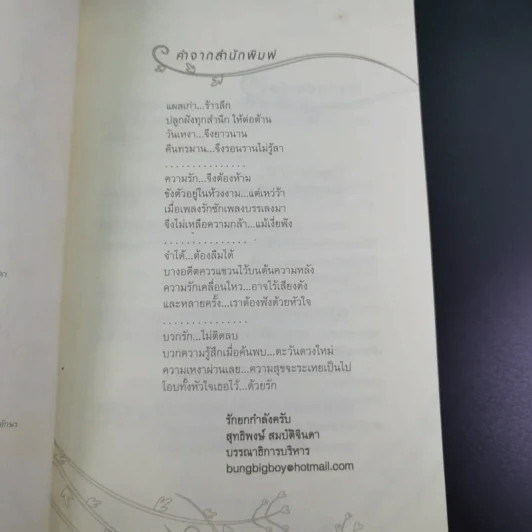 คำจากสำนักพิมพ์
แผลเก่า...ร้าวลึก
ปลูกฝังทุกสำนึก ให้ต่อต้าน
วันเหงา...จึงยาวนาน
คืนทรมาน...จึงรอนรานไม่รู้ลา
...............
ความรัก...จึงต้องห้าม
ขังตัวอยู่ในห้วงงาม...แต่เหว่ว้า
เมื่อเพลงรักชักเพลงบรรเลงมา
จึงไม่เหลือความกล้า...แม้เงี่ยฟัง
...............
จำได้...ต้องลืมได้
บางอดีตควรแขวนไว้บนต้นความหลัง
ความรักเคลื่อนไหว...อาจไร้เสียงดัง
และหลายครั้ง...เราต้องฟังด้วยหัวใจ
...............
บวกรัก...ไม่ติดลบ
บวกความรู้สึกเมื่อค้นพบ...ตะวันดวงใหม่
ความเหงาผ่านเลย...ความสุขจะระเหยเป็นไป
โอบทั้งหัวใจเธอไว้...ด้วยรัก
รักยกกำลังครับ
สุทธิพงษ์ สมบัติจินดา
บรรณาธิการบริหาร
bungbigboy@hotmail.com